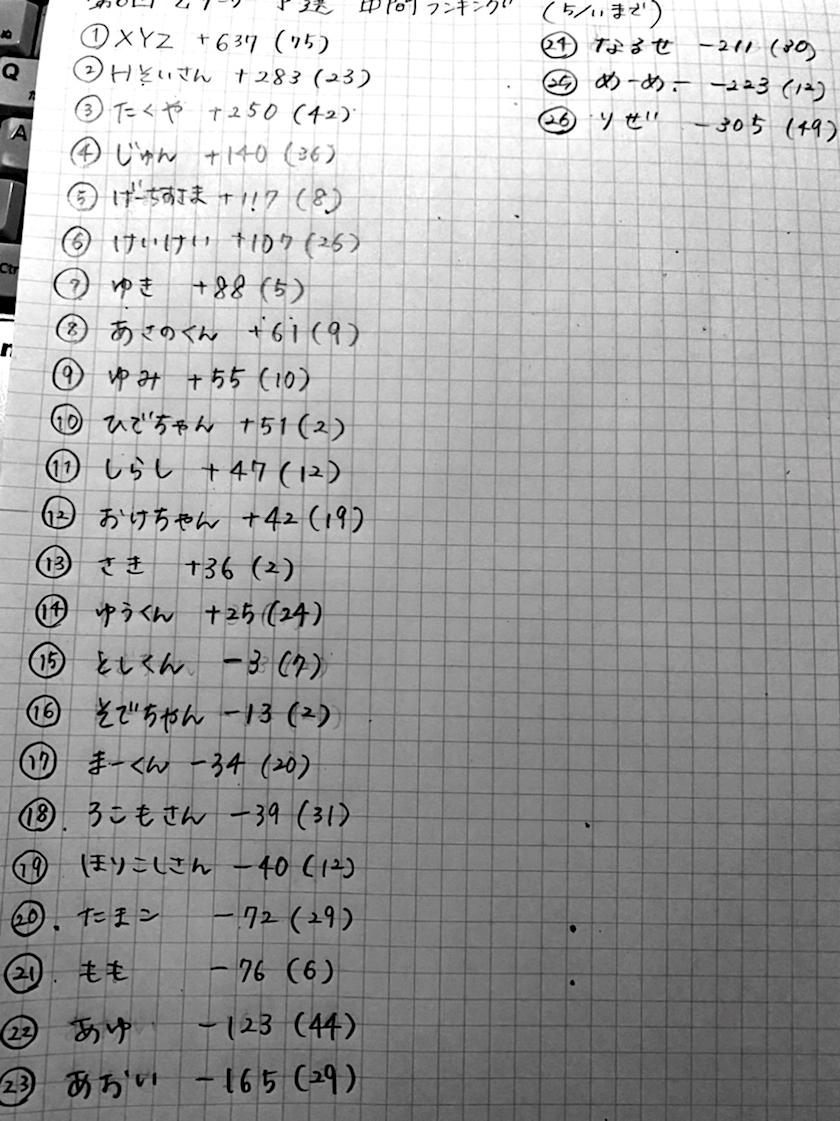 予選 中間ランキング (5/11まで)
① XYZ +637 (75)
② Hぞいさん +283 (23)
③ たくや +250 (42)
④ じゅん +140 (36)
⑤ +117 (8)
⑥ けいけい +107 (26)
⑦ ゆき +88 (5)
⑧ あさのくん +61 (9)
⑨ ゆみ +55 (10)
⑩ ひでちゃん +51 (2)
⑪ しらし +47 (12)
⑫ おけちゃん +42 (19)
⑬ さき +36 (2)
⑭ ゆうくん +25 (24)
⑮ としくん -3 (7)
⑯ そでちゃん -13 (2)
⑰ まーくん -34 (20)
⑱ ろこもさん -39 (31)
⑲ ほりこしさん -40 (12)
⑳ たまこ -72 (29)
㉑ もも -76 (6)
㉒ あゆ -123 (44)
㉓ あおい -165 (29)
㉔ なるせ -211 (30)
㉕ めーめー -223 (12)
㉖ りぜ -305 (49)
Q
A
Ctr